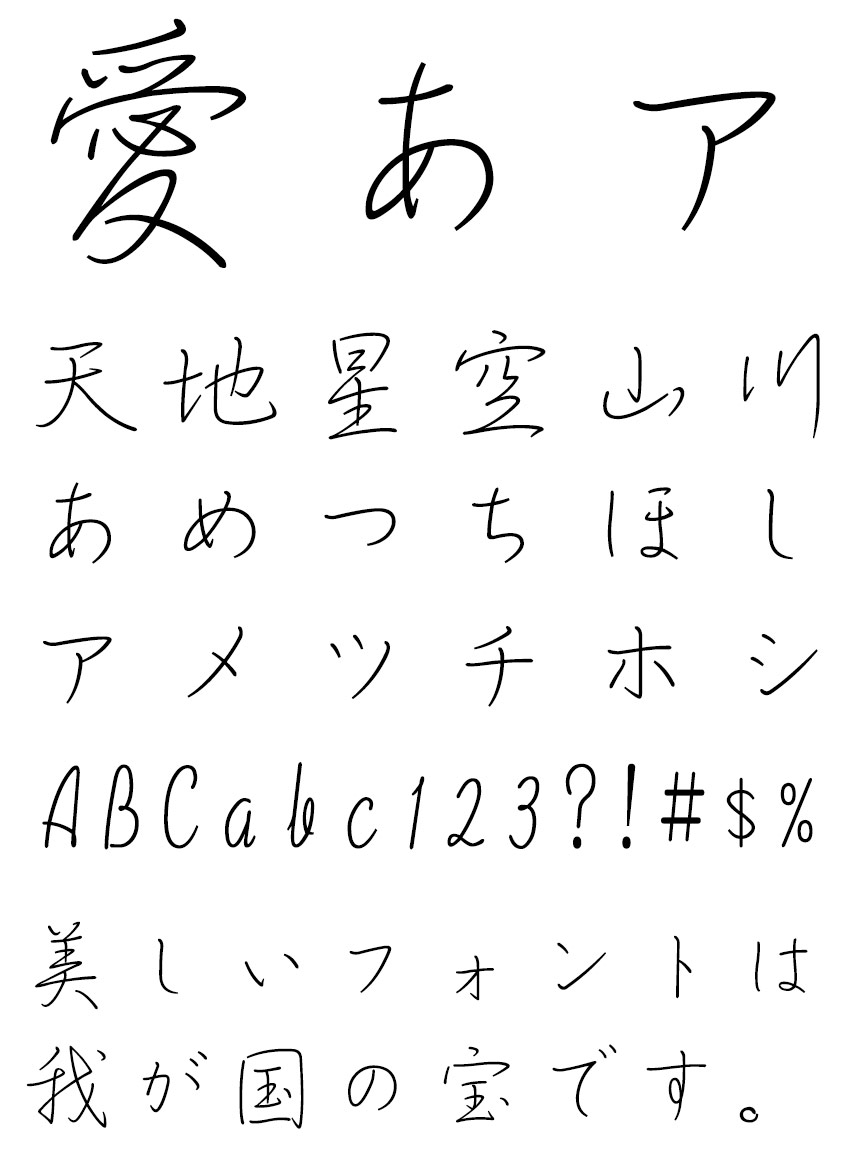 愛あア
天地星空山川
あめつちほし
アメツチホシ
ABCabc123?!#$%
美しいフォントは
我が国の宝です。